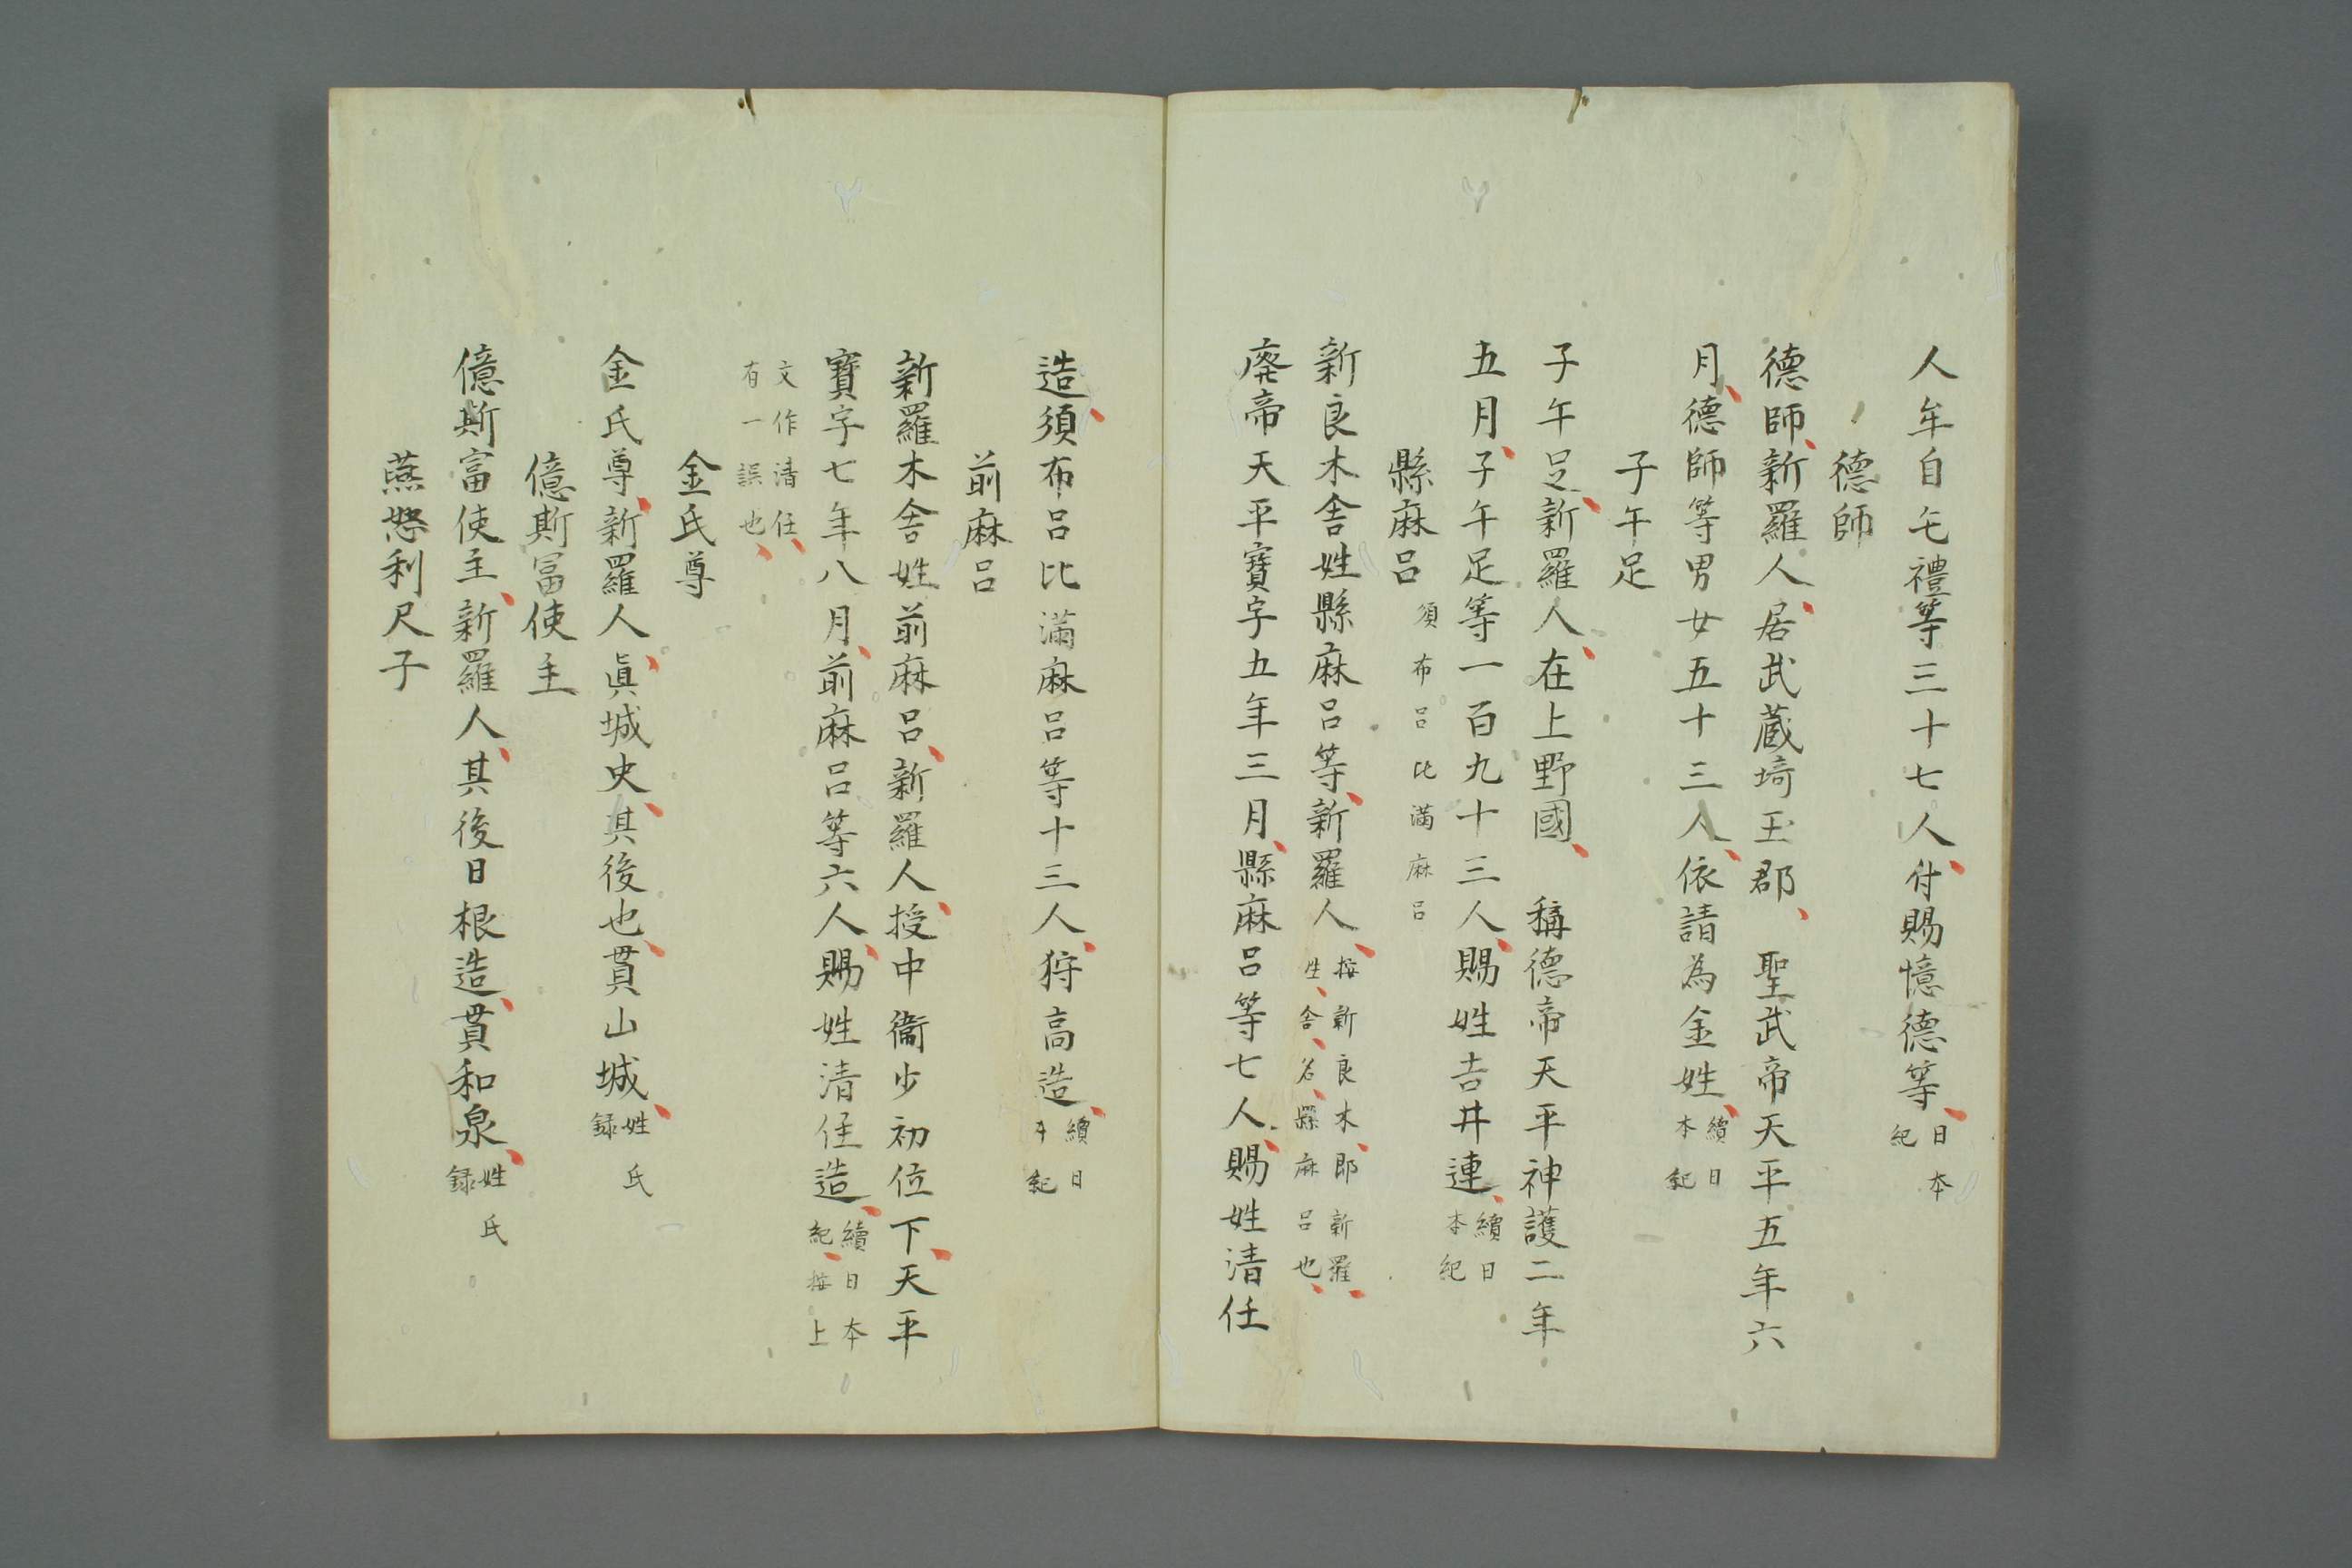 人牟自毛禮等三十七人付賜憶德等日本紀
德師
德師新羅人居武蔵埼玉郡　聖武帝天平五年六
月德師等男女五十三人依請為金姓續日本紀
子午足
子午足新羅人在上野國　稱德帝天平神護二年
五月子午足等一百九十三人賜姓吉井連續日本紀
縣麻呂須布呂比滿麻呂
新良木舎姓縣麻呂等新羅人按新良木即新羅姓舎名縣麻呂也
廃帝天平寶字五年三月縣麻呂等七人賜姓清住
造須布呂比滿麻呂等十三人狩高造續日本紀
前麻呂
新羅木舎姓前麻呂新羅人授中衞少初位下天平
寶字七年八月前麻呂等六人賜姓清住造續日本紀按上
文作清任有一誤也
金氏尊
金氏尊新羅人眞城史其後也貫山城姓氏録
億斯冨使主
億斯富使主新羅人其後日根造貫和泉姓氏録
燕怒利尺子